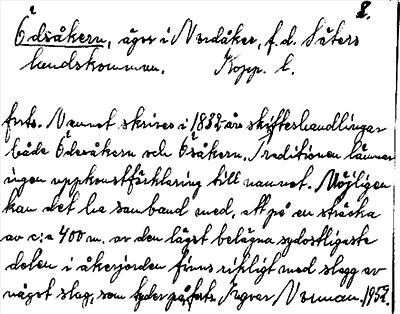 2.
Ödsåkern, ägor i Nordåker, f.d. Säters
landskommun. Kopp. l.
forts. Namnet skrives i 1832 års skifteshandlingar
både Ödesåkern och Ösåkern. Traditionen lämnar
ingen uppkomstförklaring till namnet. Möjligen
kan det ha samband med, att på en sträcka
av c:a 400 m. av den lägst belägna sydostligaste
delen i åkerjorden finns rikligt med slagg av
något slag, som tyder på forts. Ingvar Norman. 1952.